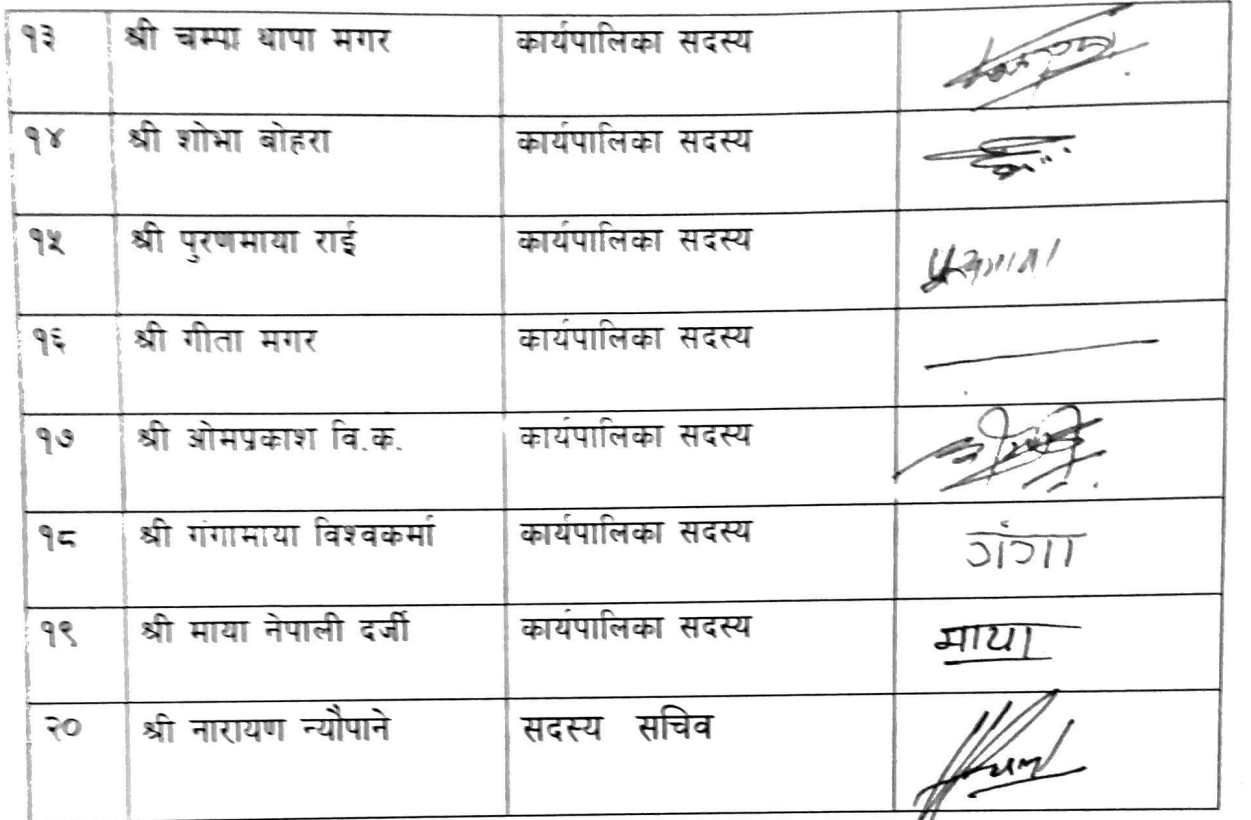 १३ श्री चम्पा थापा मगर कार्यपालिका सदस्य
१४ श्री शोभा बोहरा कार्यपालिका सदस्य
१५ श्री पुरणमाया राई कार्यपालिका सदस्य
१६ श्री गीता मगर कार्यपालिका सदस्य
१७ श्री ओमप्रकाश वि.क. कार्यपालिका सदस्य
१८ श्री गंगामाया विश्वकर्मा कार्यपालिका सदस्य गंगा
१९ श्री माया नेपाली दर्जी कार्यपालिका सदस्य माया
२० श्री नारायण न्यौपाने सदस्य सचिव